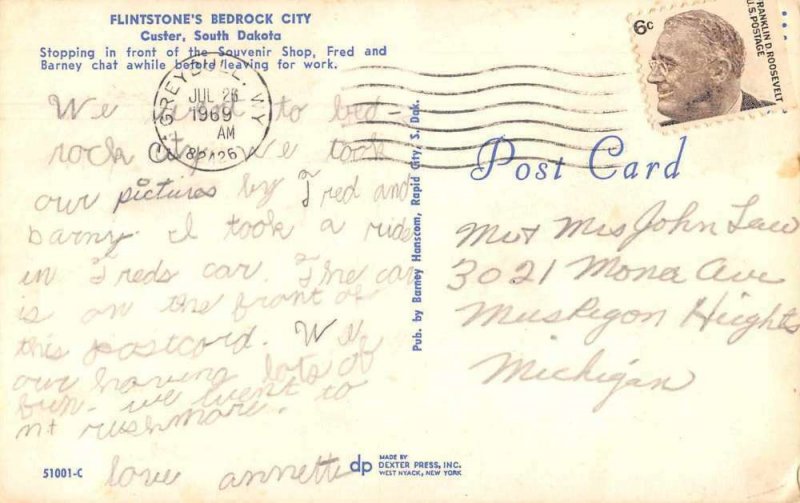 FLINTSTONE'S BEDROCK CITY
Custer, South Dakota
Stopping in front of the Souvenir Shop, Fred and
Barney chat awhile before leaving for work.
6c
FRANKLIN D. ROOSEVELT
U.S. POSTAGE
GREYBULL, WY
JUL 26
1969
AM
82426
Post Card
We to bed-
rock City. We took
our pictures by Fred and
barny. I took a ride
in Freds car. The car
is on the front of
this postcard. We
our having lots of
fun. we went to
mt rushmore.
love annette
Pub. by Barney Hanscom, Rapid City, S. Dak.
Mr + Mrs John Law
3021 Mona Ave
Muskegon Heights
Michigan
51001-C
dp
MADE BY
DEXTER PRESS, INC.
WEST NYACK, NEW YORK